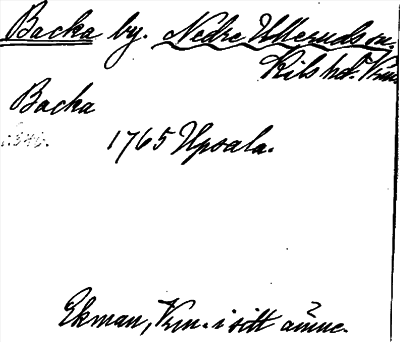 Backa by. Nedre Ulleruds sn.
Kils hd. Vrm.
Backa
1765 Upsala.
Ekman, Vrm. i sitt ämne.